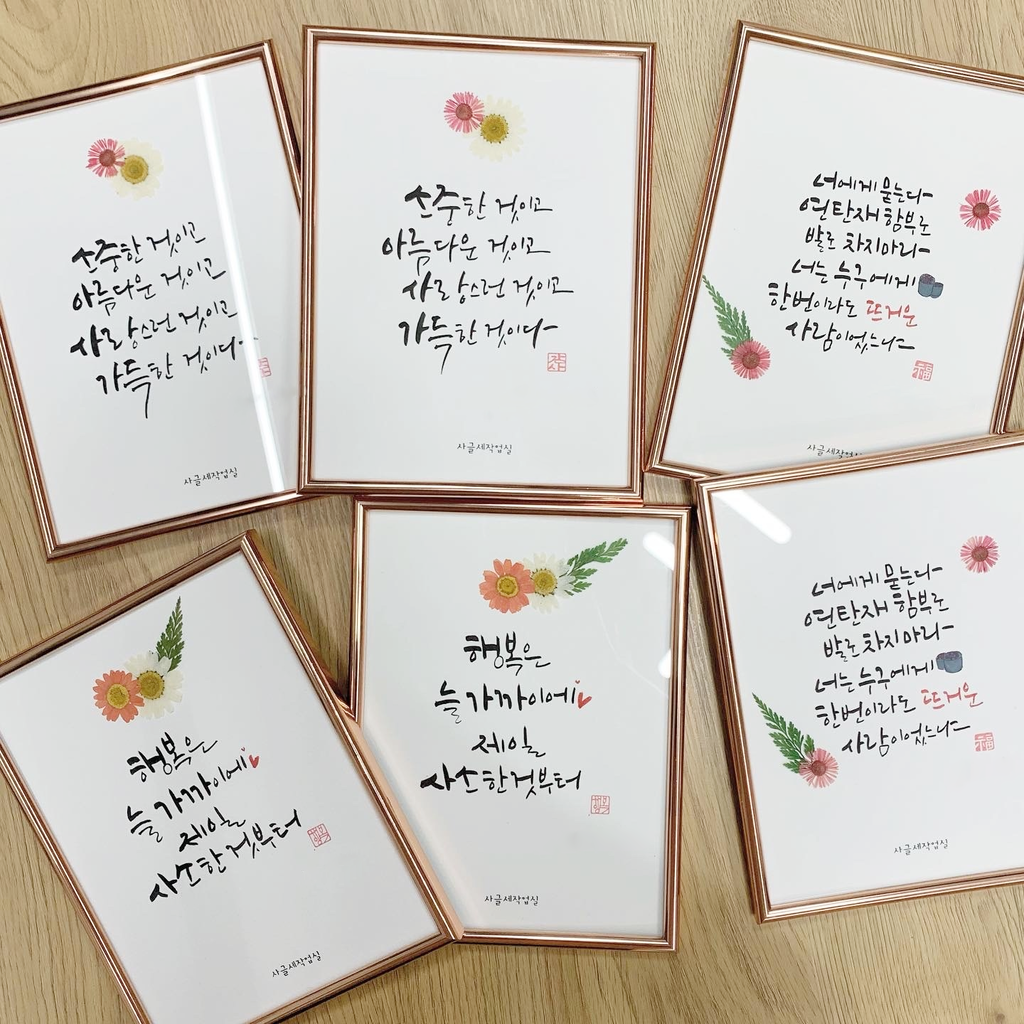 소중한 것이고
아름다운 것이고
사랑스런 것이고
가득한 것이다
사글세작업실
소중한 것이고
아름다운 것이고
사랑스런 것이고
가득한 것이다
사글세작업실
너에게 묻는다
연탄재 함부로
발로 차지마라
너는 누구에게
한번이라도 뜨거운
사람이었느냐
사글세작업실
행복은
늘 가까이에
제일
사소한것부터
사글세작업실
행복은
늘 가까이에
제일
사소한것부터
사글세작업실
너에게 묻는다
연탄재 함부로
발로 차지마라
너는 누구에게
한번이라도 뜨거운
사람이었느냐
福
사글세작업실